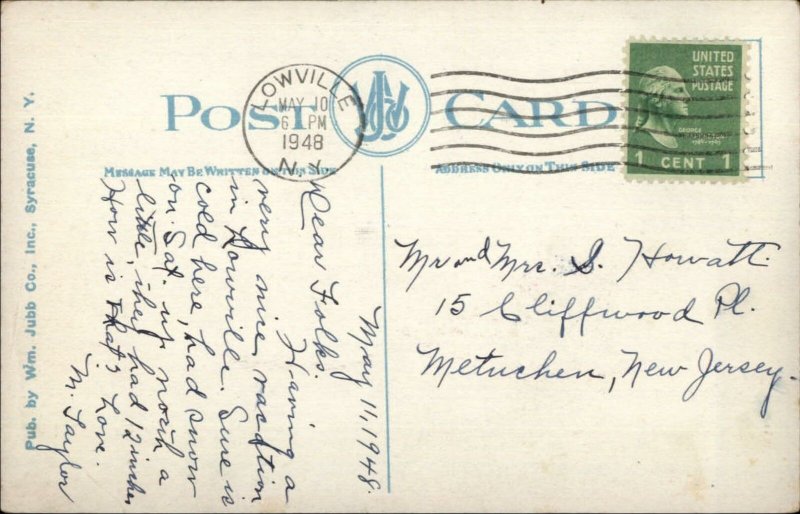 POST CARD
LOWVILLE
MAY 10
6 PM
1948
N.Y.
UNITED
STATES
POSTAGE
GEORGE
1 CENT 1
MESSAGE MAY BE WRITTEN ON THIS SIDE
ADDRESS ONLY ON THIS SIDE
Pub. by Wm. Jubb Co., Inc., Syracuse, N. Y.
May 11, 1948.
Dear Folks.
Having a
very nice vacation
in Lowville. Sure is
cold here, had snow
on Sat. up north a
little, they had 12 inches
How is that? Love.
M. Taylor
Mr and Mrs. S. Howatt.
15 Cliffwood Pl.
Metuchen, New Jersey.